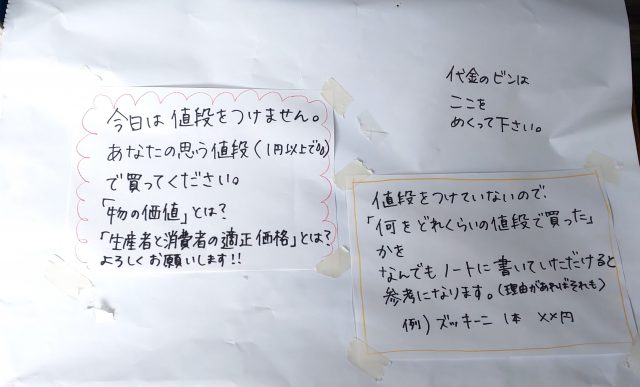 今日は値段をつけません。
あなたの思う値段(1円以上で◎)
で買ってください。
「物の価値」とは?
「生産者と消費者の適正価格」とは?
よろしくお願いします!!
代金のビンは
ここを
めくって下さい。
値段をつけていないので、
「何をどれくらいの値段で買った」
かを
なんでもノートに書いていただけると
参考になります。(理由があればそれも)
例) ズッキーニ 1本 ××円